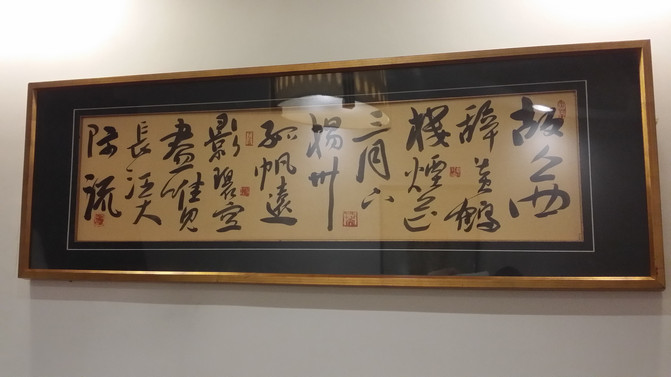 故人西
辭黃鶴
樓煙花
三月下
揚州
孤帆遠
影碧空
盡唯見
長江天
際流